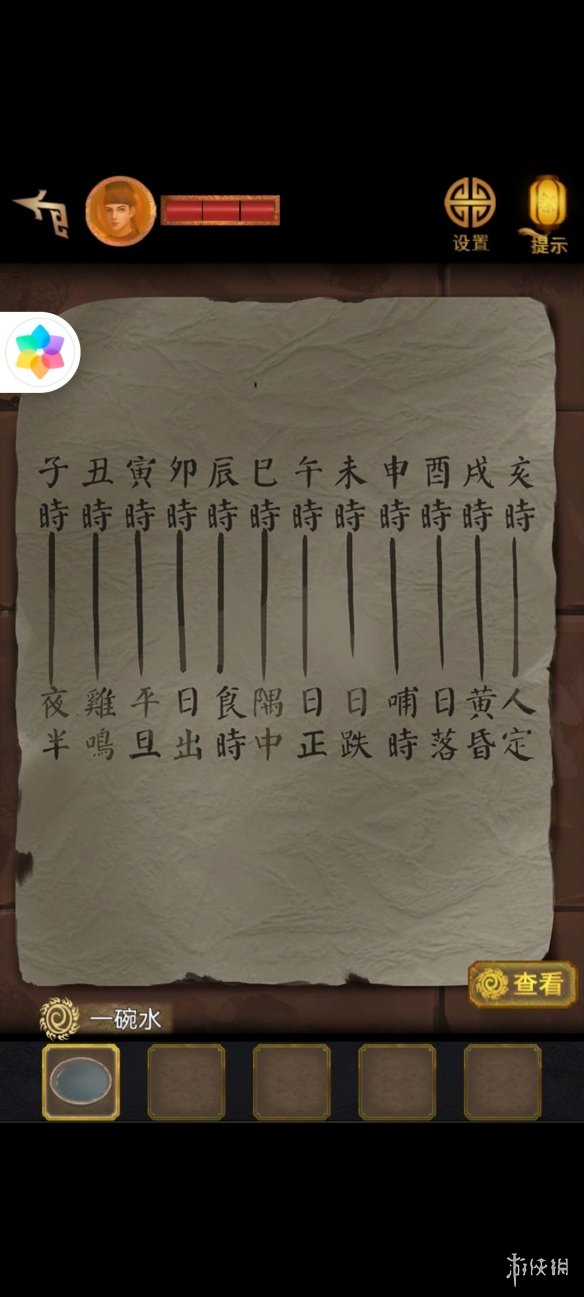 设置
提示
子丑寅卯辰巳午未申酉戌亥
時時時時時時時時時時時時
夜雞平日食隅日日哺日黄人
半鳴旦出時中正跌時落昏定
查看
一碗水
游侠网